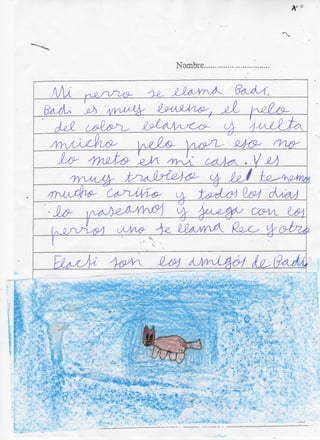 Nombre..............................
Mi perro se llama Badi.
Badi es muy bueno, el pelo
del color blanco y suelta
mucho pelo por eso no
lo meto en mi casa. Y es
muy trabieso y le tenemos
mucho cariño y todos los dias
lo paseamos y juega con los
perros uno se llama Rec y otro
Elacsi son los amigos de Badi